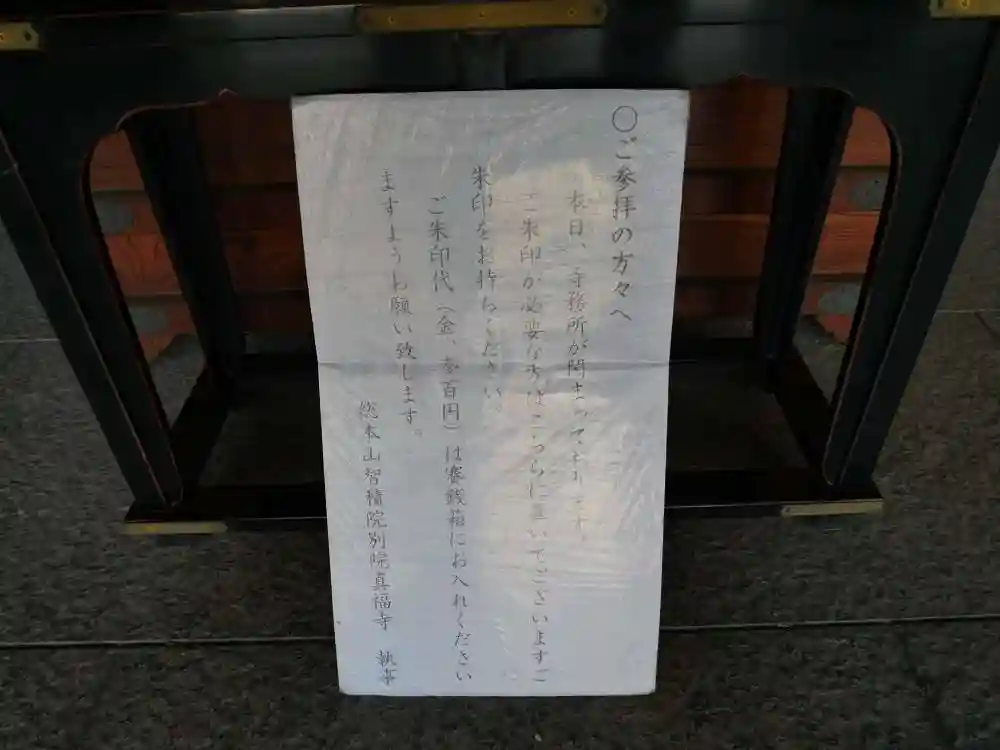 〇ご参拝の方々へ
本日、寺務所が閉まっております。
ご朱印が必要な方はこちらに置いてございますご
朱印をお持ちください。
ご朱印代（金、参百円）は賽銭箱にお入れください
ますようお願い致します。
総本山智積院別院真福寺 執事